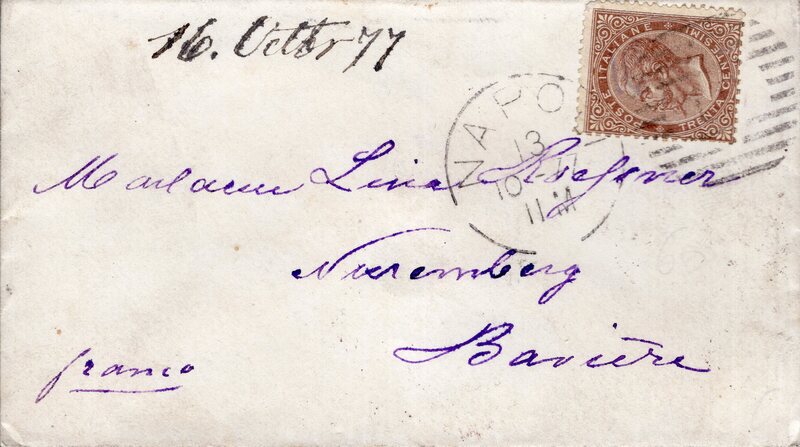 16. Octbr 77
POSTE ITALIANE
TRENTA CENTESIMI
NAPO
13
10-77
11 M
Madame Lina
Nuremberg
Bavière
franco